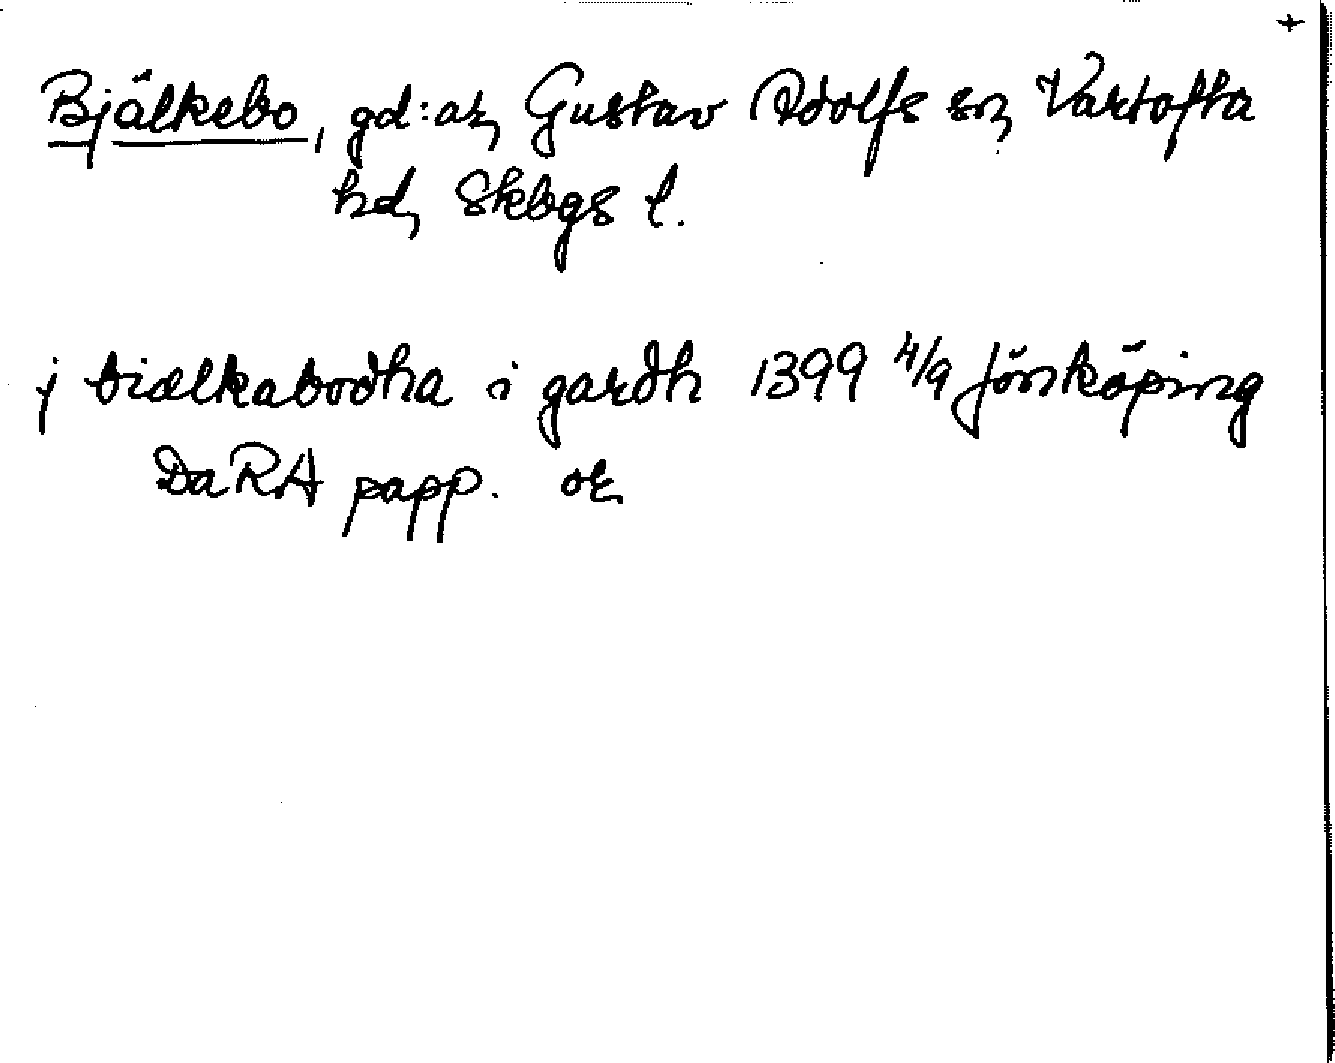 +
Bjälkebo, gd:ar, Gustav Adolfs sn, Vartofta
hd, Skbgs l.
j biælkabodha i gardh 1399 4/9 Jönköping
DaRA papp. or